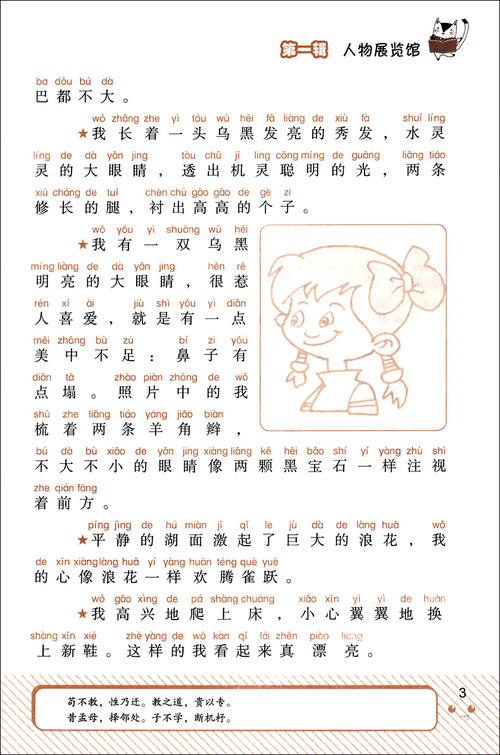 第一辑 人物展览馆
bā dōu bú dà
巴都不大。
wǒ zhǎng zhe yì tóu wū hēi fā liàng de xiù fà shuǐ líng
★我长着一头乌黑发亮的秀发，水灵
líng de dà yǎn jing tòu chū jī ling cōng míng de guāng liǎng tiáo
灵的大眼睛，透出机灵聪明的光，两条
xiū cháng de tuǐ chèn chū gāo gāo de gè zi
修长的腿，衬出高高的个子。
wǒ yǒu yì shuāng wū hēi
★我有一双乌黑
míng liàng de dà yǎn jing hěn rě
明亮的大眼睛，很惹
rén xǐ ài jiù shì yǒu yì diǎn
人喜爱，就是有一点
měi zhōng bù zú bí zi yǒu
美中不足：鼻子有
diǎn tā zhào piàn zhōng de wǒ
点塌。照片中的我
shū zhe liǎng tiáo yáng jiǎo biàn
梳着两条羊角辫，
bú dà bù xiǎo de yǎn jing xiàng liǎng kē hēi bǎo shí yí yàng zhù shì
不大不小的眼睛像两颗黑宝石一样注视
zhe qián fāng
着前方。
píng jìng de hú miàn jī qǐ le jù dà de làng huā wǒ
★平静的湖面激起了巨大的浪花，我
de xīn xiàng làng huā yí yàng huān téng què yuè
的心像浪花一样欢腾雀跃。
wǒ gāo xìng de pá shàng chuáng xiǎo xīn yì yì de huàn
★我高兴地爬上床，小心翼翼地换
shàng xīn xié zhè yàng de wǒ kàn qǐ lái zhēn piào liang
上新鞋。这样的我看起来真漂亮。
苟不教，性乃迁。教之道，贵以专。
昔孟母，择邻处。子不学，断机杼。
3